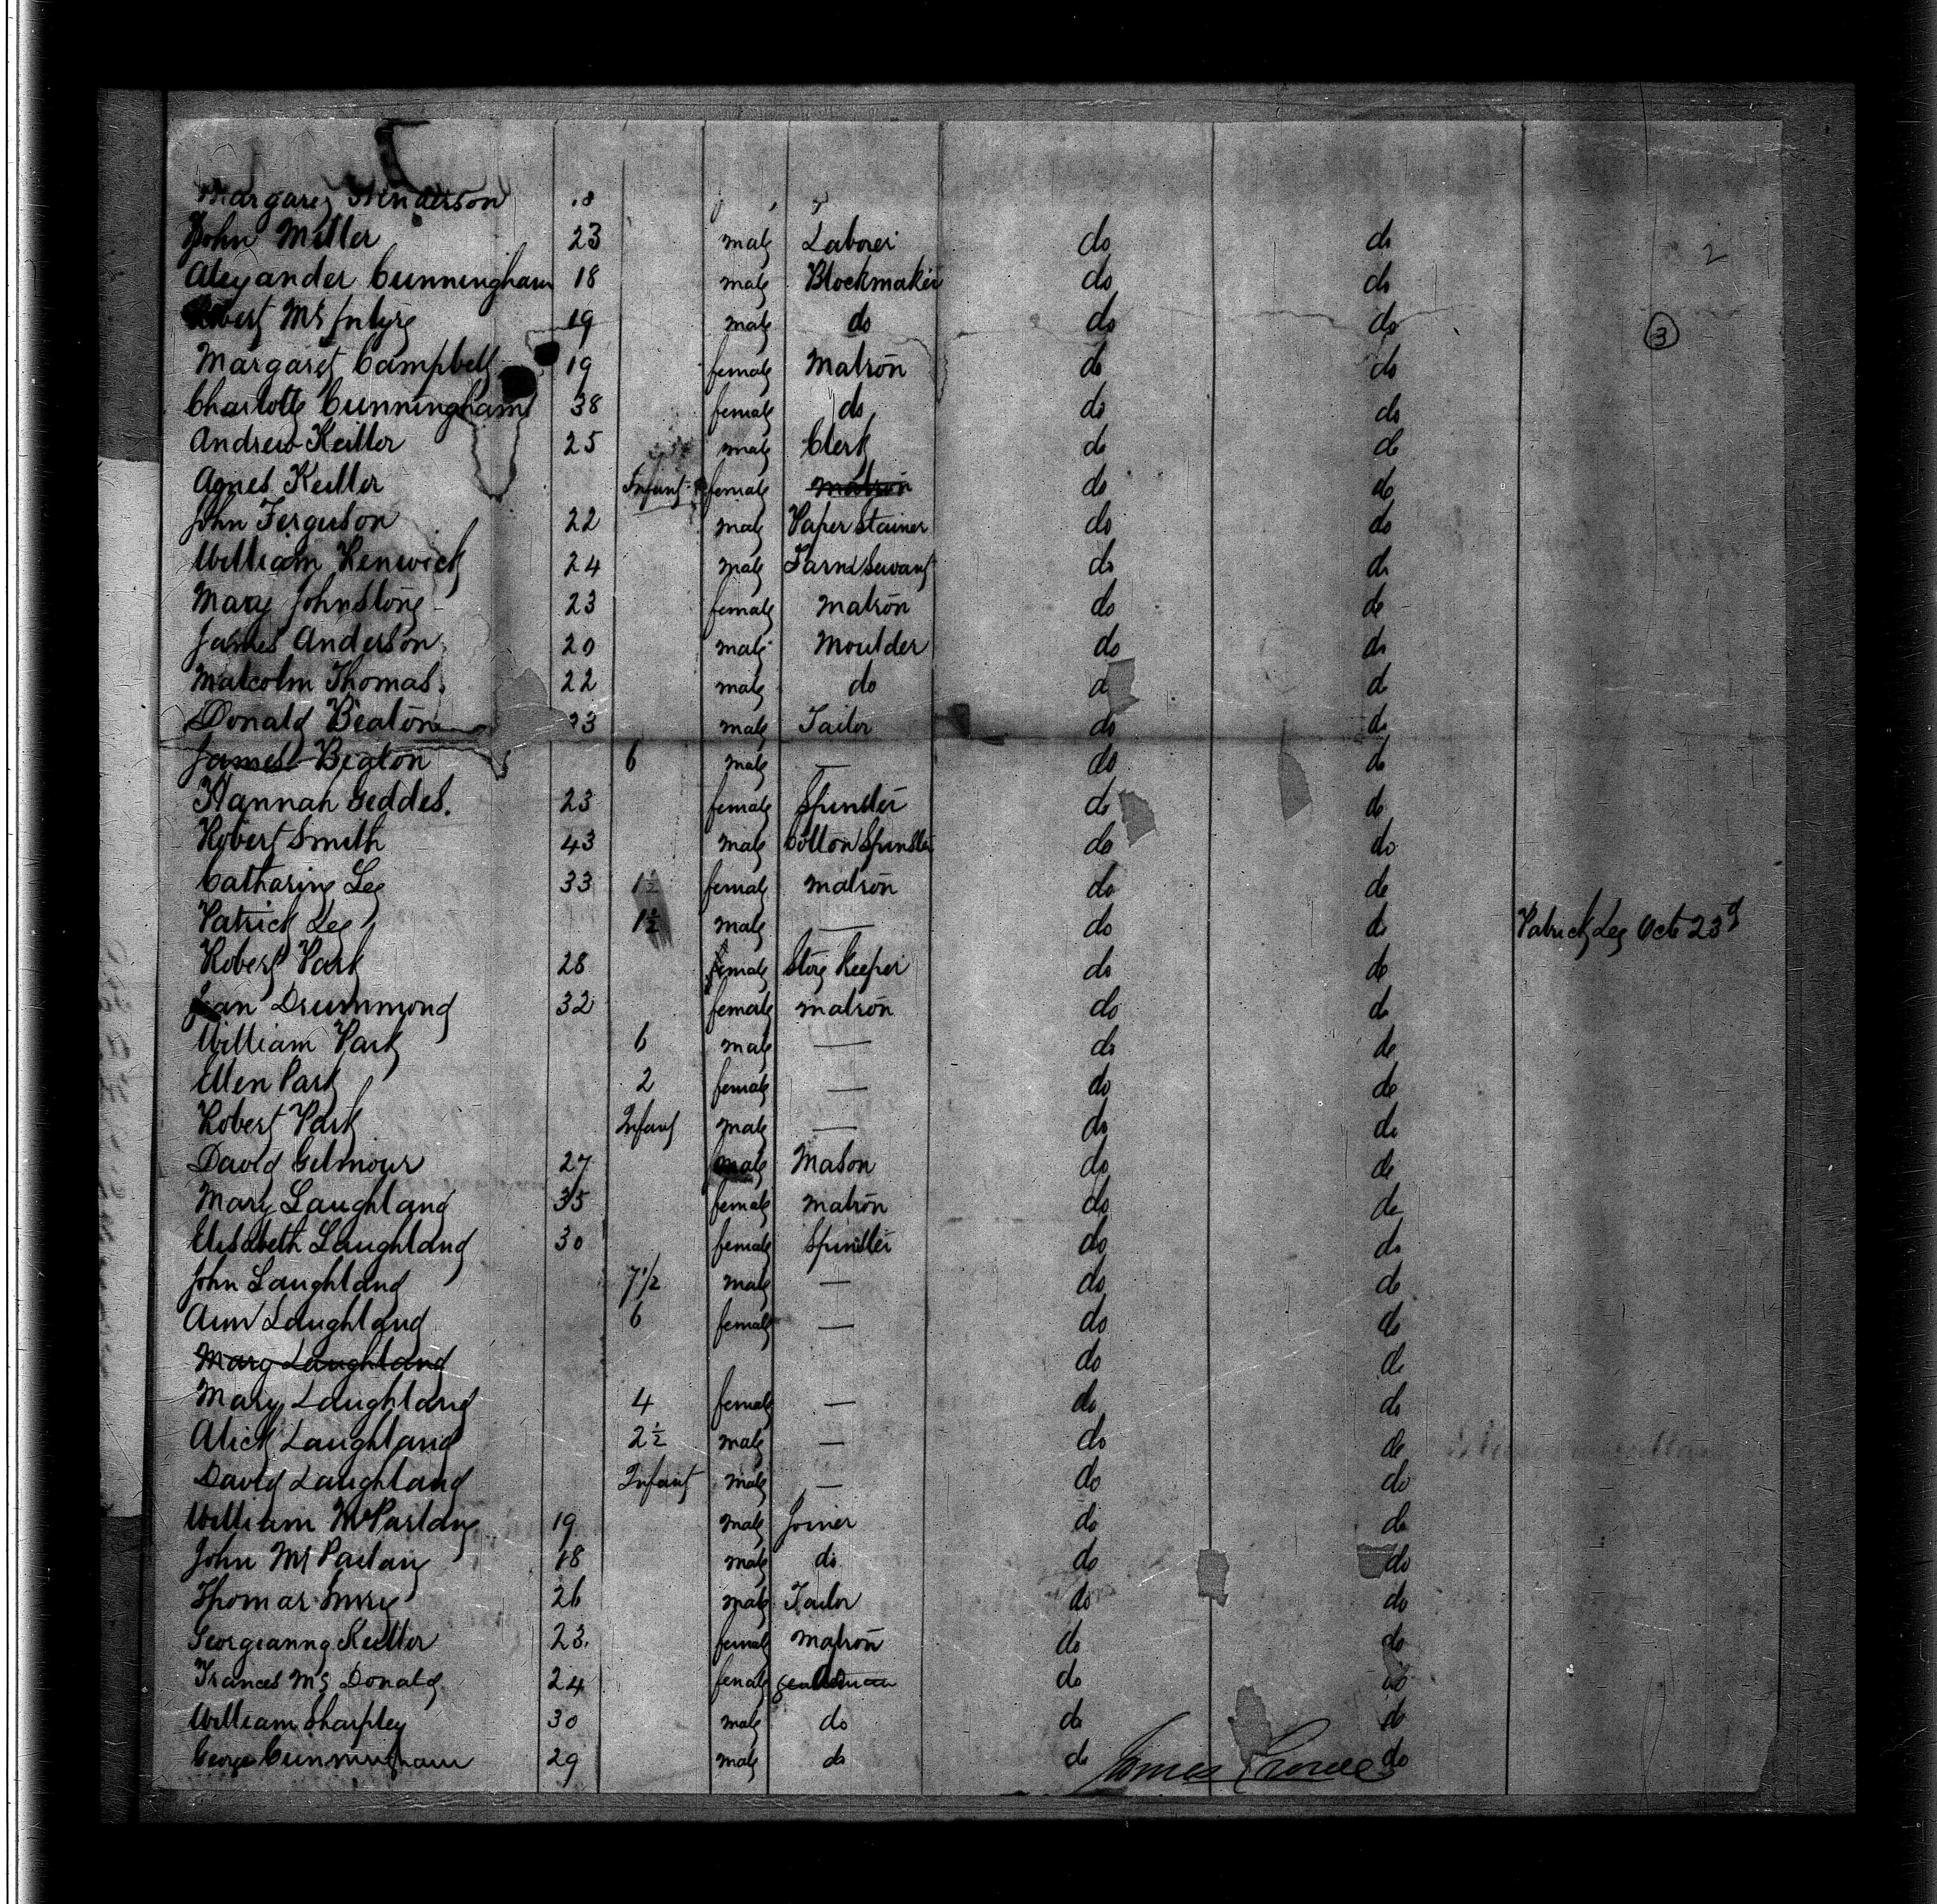 Margaret Henderson 18
John Miller 23 male Laborer do do 2
Alexander Cunningham 18 male Blockmaker do do
Robert McIntyre 19 male do do do 3
Margaret Campbell 19 female Matron do do
Charlotte Cunningham 38 female do do do
Andrew Keiller 25 male Clerk do do
Agnes Keiller Infant female matron do do
John Ferguson 22 male Paper Stainer do do
William Renwick 24 male Farm Servant do do
Mary Johnstone 23 female matron do do
James Anderson 20 male Moulder do do
Malcolm Thomas 22 male do d d
Donald Beaton 23 male Tailor do do
James Beaton 6 male — do do
Hannah Geddes. 23 female Spinster do do
Robert Smith 43 male Cotton Spinster do do
Catharine Lee 33 1½ female matron do do
Patrick Lee 1½ male — do do Patrick Lee Oct 23d
Robert Park 28 female Store Keeper do do
Jean Drummond 32 female matron do do
William Park 6 male — do do
Ellen Park 2 female — do do
Robert Park Infant male — do do
David Gilmour 27 male Mason do do
Mary Laughland 35 female matron do do
Elisabeth Laughland 30 female Spinster do do
John Laughland 7½ male — do do
Ann Laughland 6 female — do do
Mary Laughland do do
Mary Laughland 4 female — do do
Alick Laughland 2½ male — do do
David Laughland Infant male — do do
William McParlane 19 male Joiner do do
John McParlan 18 male do do do
Thomas 26 male Tailor do do
Georgianna Keiller 23. female Matron do do
Frances Mc Donald 24 female do do do
William Sharpley 30 male do do do
George Cunningham 29 male do do do
James